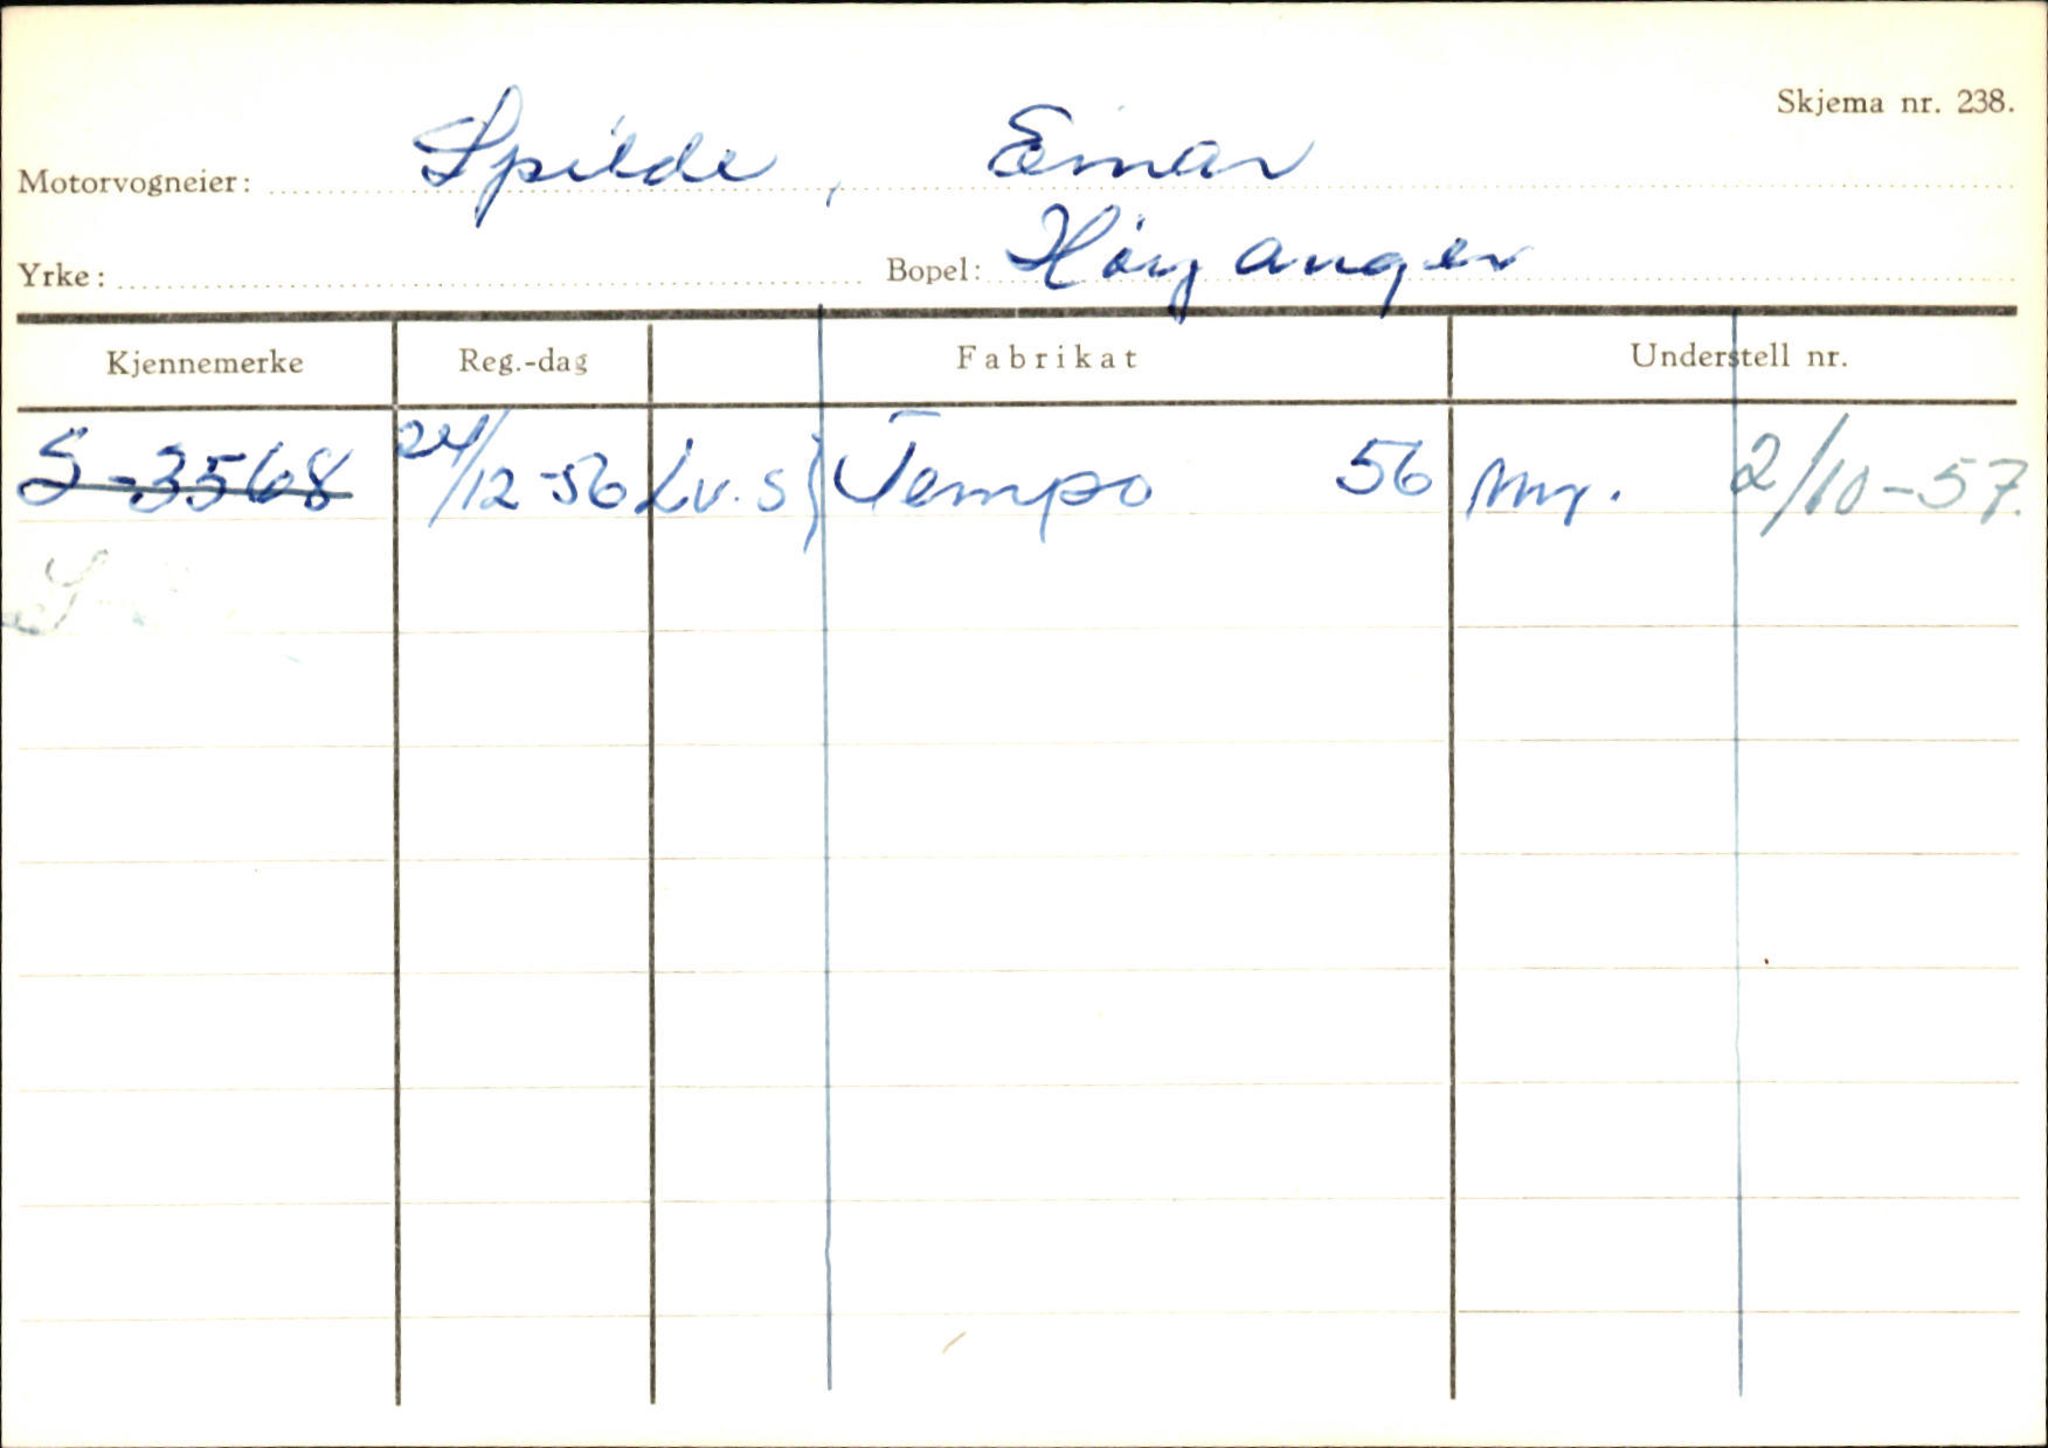 Skjema nr. 238.
Motorvogneier: Spilde, Einar
Yrke: Bopel: Høyanger
Kjennemerke Reg.-dag Fabrikat Understell nr.
S-3568 24/12-56 Lv. s) Tempo 56 2/10-57.